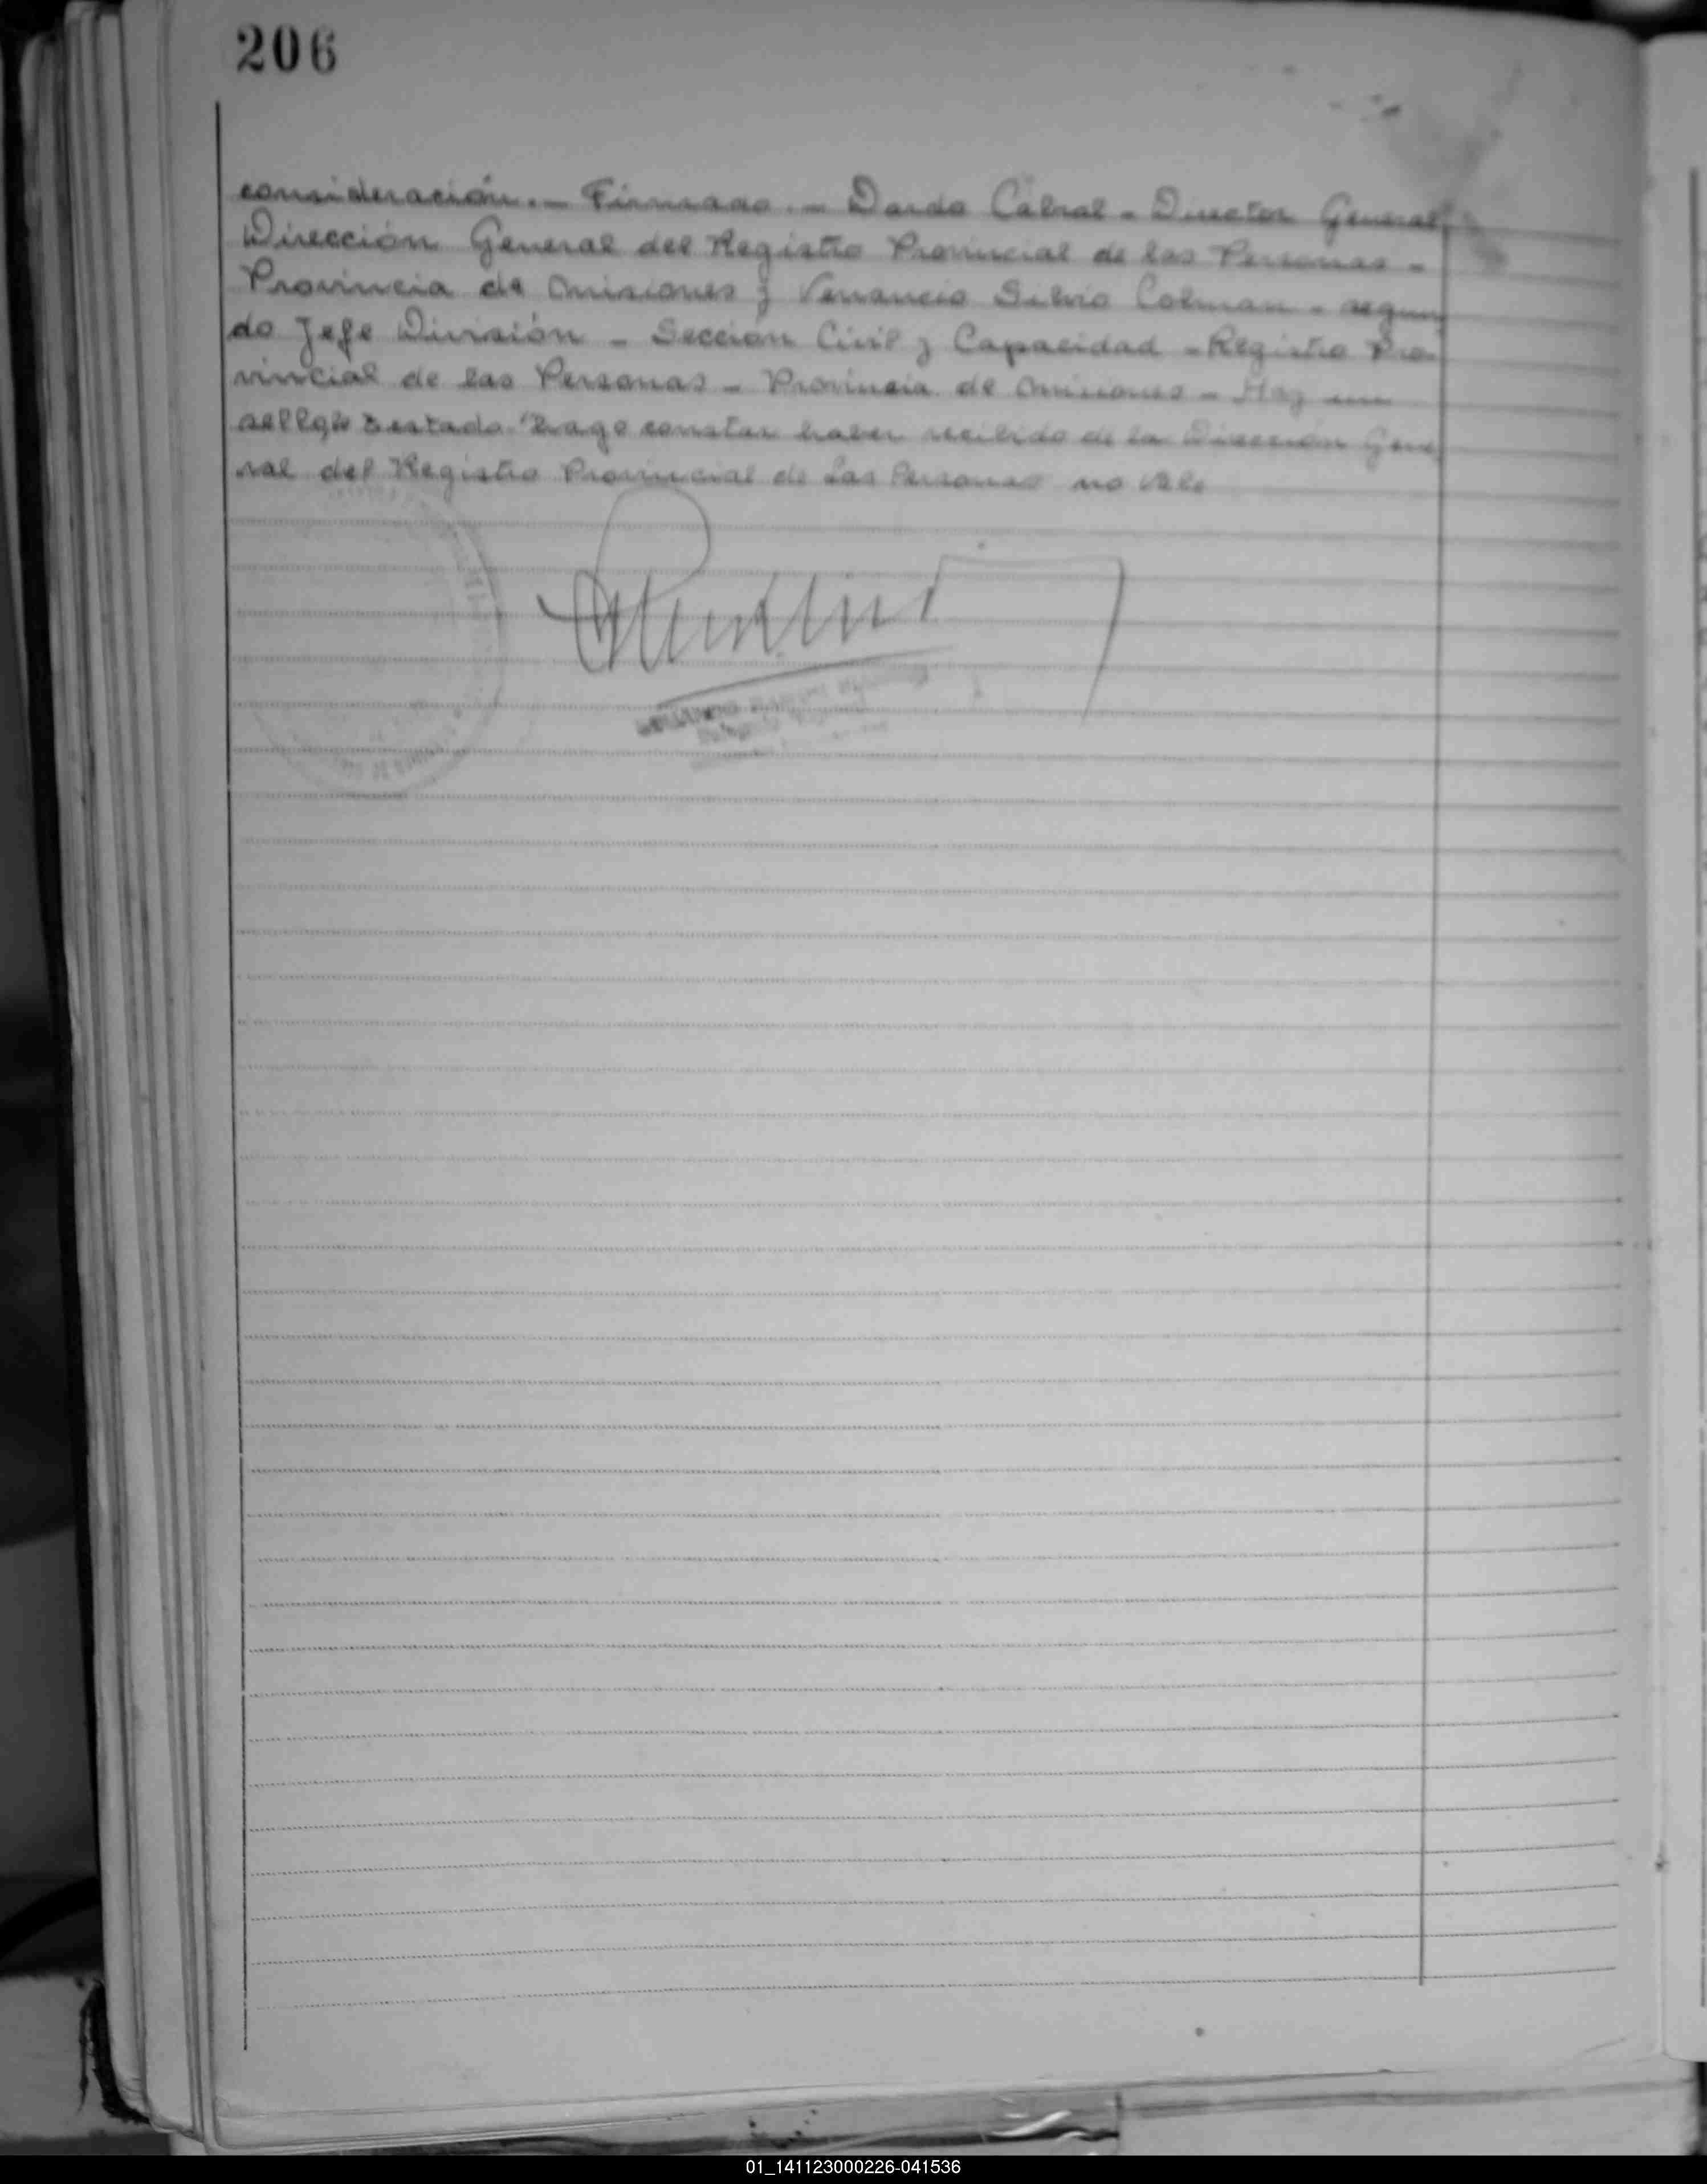 206
consideración.- Firmado.- Dardo Cabral - Director General
Dirección General del Registro Provincial de las Personas -
Provincia de Misiones y Venancio Silvio Colman - segun
do Jefe División - Sección Civil y Capacidad - Registro Pro
vincial de las Personas - Provincia de Misiones - Hay un
sello Testado "Hago constar haber recibido de la Dirección Gene
ral del Registro Provincial de Las Personas no vale
01_141123000226-041536